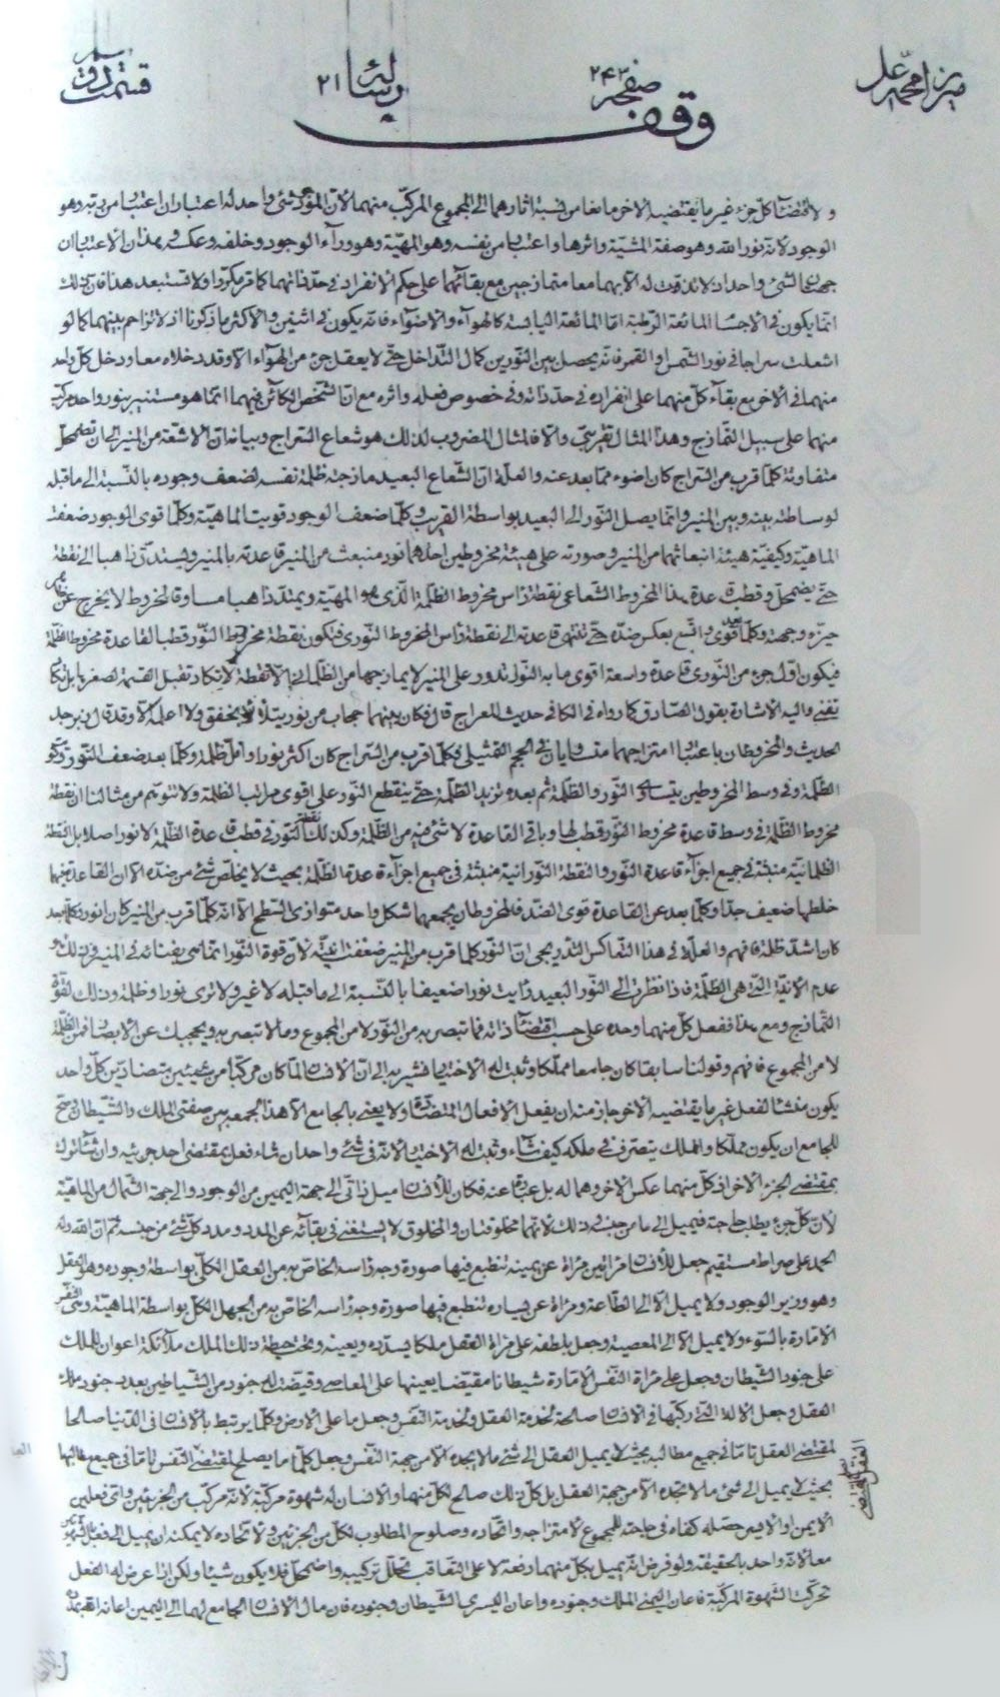 ميرزا محمد علي صفحه ۲۴۳ رسالة ۲۱ قسمت دوم
وقف
ولاقتضاء كل جزء غير ما يقتضيه الاخر مانعا من نسبة اثارهما الى المجموع المركب منهما لأن المؤثر شئ واحد له اعتباران اعتبار من ربه وهو
الوجود لانه نور الله وهو صفة المشية واثرها واعتبار من نفسه وهو المهية وهو وراء الوجود وخلفه وعكسه وبهذان الاعتباران
جهتا الشئ واحدا اذ لا تذوت له الا بهما معا متمازجين مع بقائهما على حكم الانفراد في حد ذاتهما كما قر مكررا ولا تستبعد هذا فان ذلك
انما يكون في الاجسام المائعة الرطبة اما المائعة اليابسة كالهواء والاضواء فانه يكون في اثنين والاكثر ما ذكرنا اذ لا تزاحم بينهما كما لو
اشعلت سراجا في نور الشمس او القمر فانه يحصل بين النورين كمال التداخل حتى لا يعقل جزء من الهواء الا وقد دخلاه معا ودخل كل واحد
منهما في الاخر مع بقاء كل منهما على انفراده في حد ذاته وفي خصوص فعله واثره مع ان الشخص الكائن فيهما انما هو مستنير بنور واحد مركب
منهما على سبيل التمازج وهذا المثال تقريبى والا فالمثال المضروب لذلك هو شعاع السراج وبيانه ان الاشعة من المنير الى ان تضمحل
متفاوتة كلما قرب من السراج كان اضوء مما بعد عنه والعلة ان الشعاع البعيد مازجته ظلمة نفسه لضعف وجوده بالنسبة الى ما قبله
لوساطته بينه وبين المنير وانما يصل النور الى البعيد بواسطة القريب وكلما ضعف الوجود قويت الماهية وكلما قوى الوجود ضعفت
الماهية وكيفية هيئة انبعاثهما من المنير وصورته على هيئة مخروطين احدهما نور منبعث من المنير قاعدته بالمنير ويستدق ذاهبا الى نقطة
حتى يضمحل وقطب قاعدة هذا المخروط الشعاعى نقطة راس مخروط الظلمة الذى هو المهية ويمتد ذاهبا مساوقا لمخروط لا يخرج عن
حيزه وجهته وكلما بعد قوى واتسع بعكس ضده حتى تنتهى قاعدته الى نقطة راس المخروط النورى فتكون نقطة مخروط النور قطبا لقاعدة مخروط الظلمة
فيكون اول جزء من النورى قاعدة واسعة اقوى ما به النور تدور على المنير لا يمازجها من الظلمانى الا نقطة لا تكاد تقبل القسمة لصغرها بل تكاد
تفنى واليه الاشارة بقول الصادق كما رواه في الكافى حديث المعراج قال فكان بينهما حجاب من نور يتلألأ بخفق ولا اعلمه الا وقد قال زبرجد
الحديث والمخروطان باعتبار امتزاجهما متساويان في الحجم التمثيلى فكلما قرب من السراج كان اكثر نورا واقل ظلمة وكلما بعد ضعف النور وقوى
الظلمة وفى وسط المخروطين يتساوى النور والظلمة ثم بعده تزيد الظلمة حتى ينقطع النور على اقوى مراتب الظلمة ولا تتوهم من مثالنا ان نقطة
مخروط الظلمة في وسط قاعدة مخروط النور قطب لها وباقى القاعدة لا شئ فيه من الظلمة وكذلك نقطة النور في قطب قاعدة الظلمة لا نور اصلا بل النقطة
الظلمانية منبثة في جميع اجزاء قاعدة النور والنقطة النورانية منبثة في جميع اجزاء قاعدة الظلمة بحيث لا يخلص شئ من ضده الا ان القاعدة فيها
خلطها ضعيف جدا وكلما بعد عن القاعدة قوى الضد فالمخروطان يجمعهما شكل واحد متوازى السطح الا انه كلما قرب من المنير كان انور وكلما بعد
كان اشد ظلمة فافهم والعلة في هذا التعاكس التدريجى ان النور كلما قرب من المنير ضعفت انيته لأن قوة النور انما هي بفنائه في المنير فى ذلك
عدم الانية التى هي الظلمة فاذا نظرت الى النور البعيد رأيت نورا ضعيفا بالنسبة الى ما قبله لا غير ولا ترى نورا وظلمة وذلك لقوة
التمازج ومع هذا ففعل كل منهما وحده على حسب اقتضاء ذاته فما تبصر به من النور لا من المجموع وما لا تبصر به ويحجبك عن الابصار فمن الظلمة
لا من المجموع فافهم وقولنا سابقا كان جامعا مملكا وثبت له الاختيار نشير به الى ان الانسان لما كان مركبا من شيئين متضادين كل واحد
يكون منشئا لفعل غير ما يقتضيه الاخر جاز منه ان يفعل الافعال المتضادة ولا يعنى بالجامع الا هذا لجمعه بين صفتى الملك والشيطان وصح
للجامع ان يكون مملكا والملك يتصرف في ملكه كيف شاء وثبت له الاختيار لانه في شئ واحد ان شاء فعل بمقتضى احد جزئيه وان شاء ترك
بمقتضى الجزء الاخر اذ كل منهما عكس الاخر وهما له بل عبارة عنه فكان للانسان ميل ذاتى الى جهة اليمين من الوجود والى جهة الشمال من الماهية
لأن كل جزء يطلب حاجته فيميل الى ما من جنسه وذلك لانهما مخلوقتان والمخلوق لا يستغنى في بقائه عن المدد ومدد كل شئ من جنسه ثم ان الله وله
الحمد على صراط مستقيم جعل للانسان مراتين مراة عن يمينه تنطبع فيها صورة وجه راسه الخاص به من العقل الكلى بواسطة وجوده وهو العقل
وهو وزير الوجود ولا يميل الا الى الطاعة ومراة عن يساره تنطبع فيها صورة وجه راسه الخاص به من الجهل الكل بواسطة الماهية وهى النفس
الامارة بالسوء ولا يميل الا الى المعصية وجعل بلطفه على مراة العقل ملكا يسدده ويعينه وتحت حيطة ذلك الملك ملائكة اعوان للملك
على جنود الشيطان وجعل على مراة النفس الامارة شيطانا مقيضا يعينها على المعاصى وقيض له جنود من الشياطين بعدد جنود ملك
العقل وجعل الالة التى ركبها في الانسان صالحة لخدمة العقل ولخدمة النفس وجعل ما على الارض وكلما يرتبط بالانسان في الدنيا صالحا
لمقتضى العقل تاما في جميع مطالبه بحيث لا يميل العقل الى شئ ما لا يجده الا من جهة النفس وجعل كلما يصلح لمقتضى النفس تاما في جميع مطالبها
بحيث لا يميل الى شئ ما لا تجده الا من جهة العقل بل كل ذلك صالح لكل منهما والانسان له شهوة مركبة لانه مركب من الجزئين واتى فعل من
الايمن او الايسر حصل له كفاه في حاجته للمجموع لامتزاجه واتحاده وصلوح المطلوب لكل من الجزئين ولاتحاده لا يمكنه ان يميل الى فعل
معا لانه واحد بالحقيقة ولو فرض انه يميل بكل منهما دفعة لا على التعاقب تحلل تركيبه واضمحل فلا يكون شيئا ولكن اذا عرض له الفعل
تحركت الشهوة المركبة فاعان اليمنى الملك وجنوده واعان اليسرى الشيطان وجنوده فان مال الانسان الجامع لهما الى اليمين اعانه الله